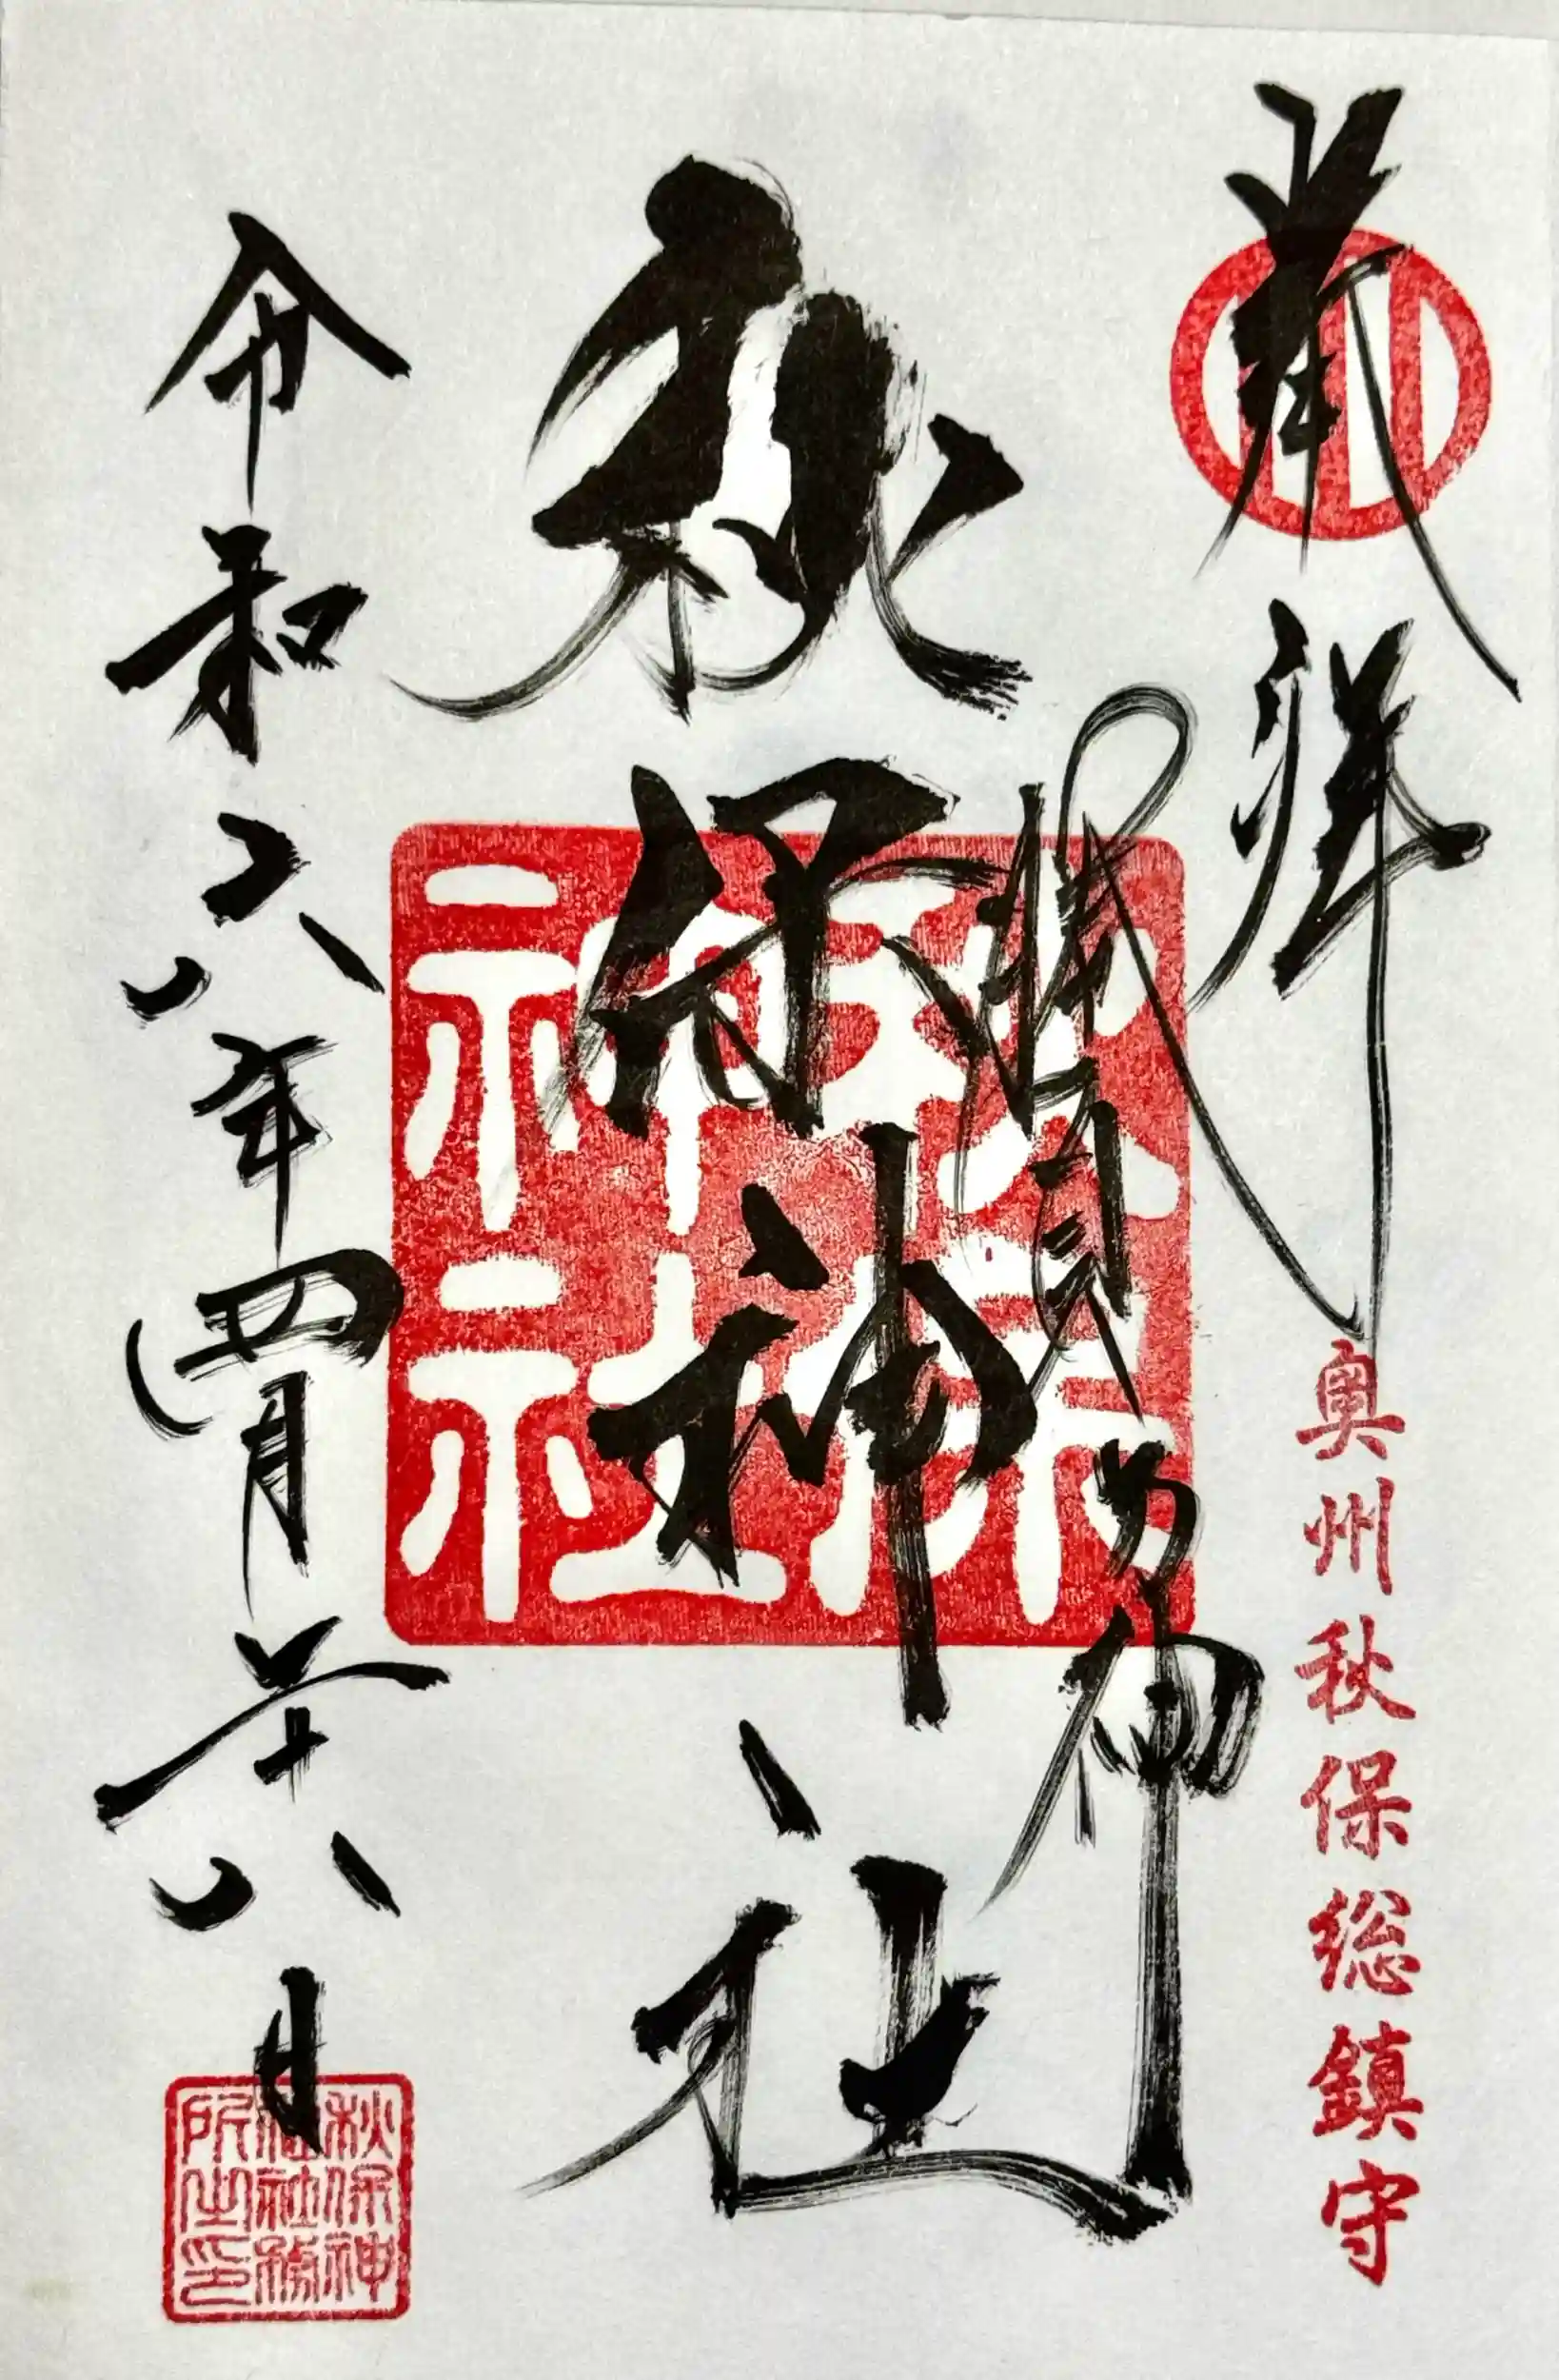 奉拝
奥州秋保総鎮守
勝負乃神
秋保神社
秋保神社
令和六年四月二十八日
秋保神
社社務
所之印